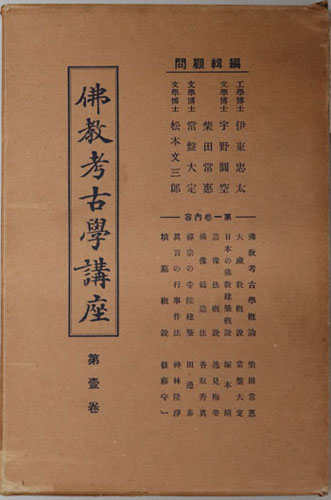 編輯顧問
工學博士 伊東忠太
文學博士 宇野圓空
柴田常惠
文學博士 常盤大定
文學博士 松本文三郎
第一卷內容
佛教考古學概論 柴田常惠
大藏教概說 常盤大定
日本の佛教建築概說 塚本靖
造像法概說 逸見梅榮
佛像鑄造法 香取秀眞
禪宗の寺院建築 田邊泰
眞言の行事作法 神林隆淨
墳墓概說 後藤守一
佛教考古學講座
第壹卷